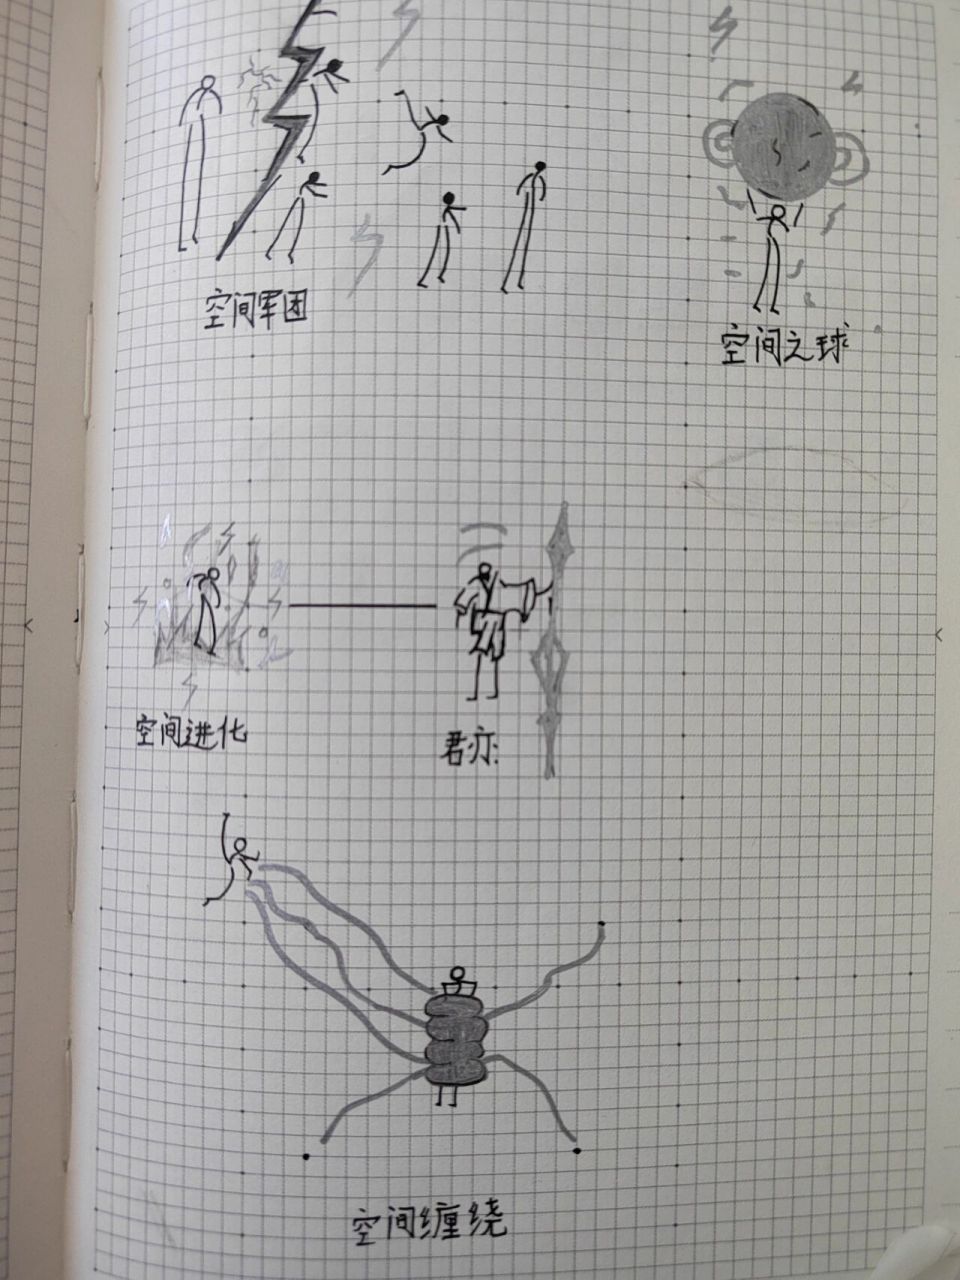 空间军团
空间之球
空间进化
君亦
空间缠绕